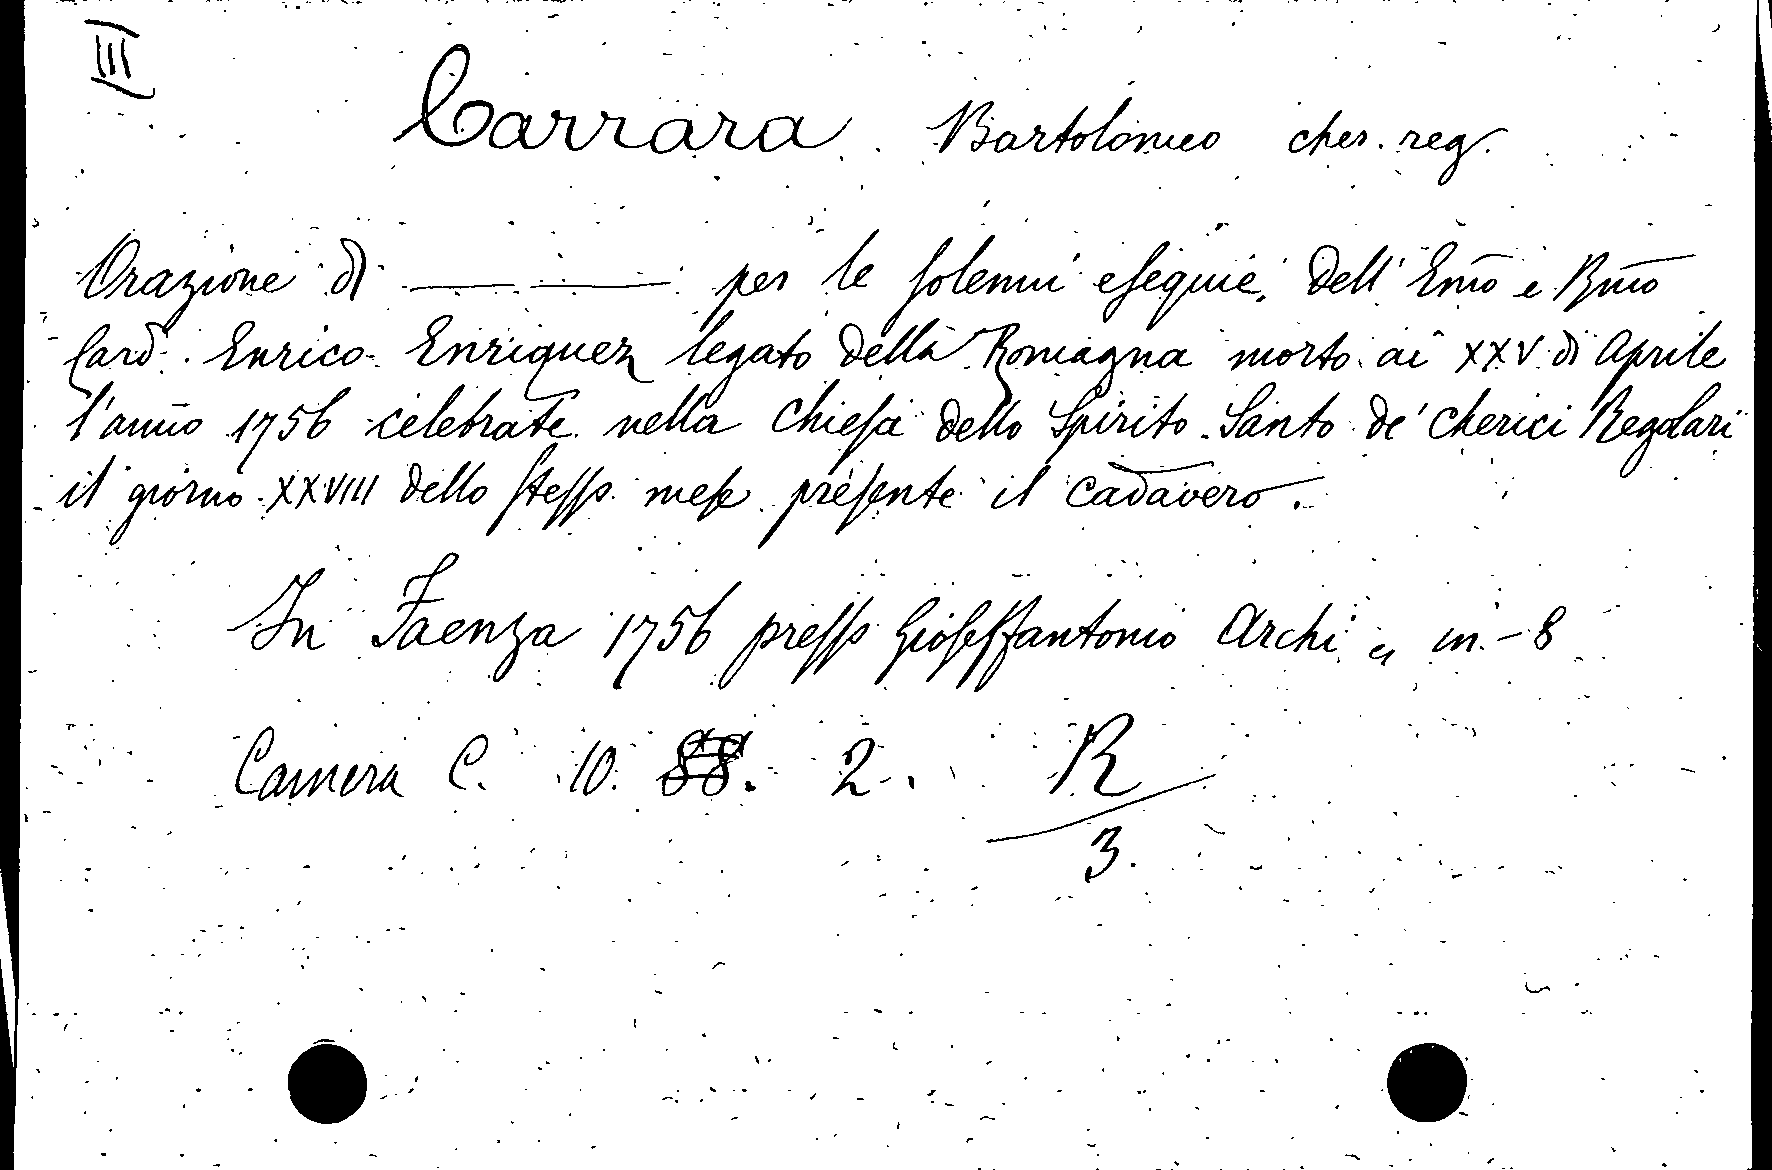 III
Carrara Bartolomeo cher. reg.
Orazione di ——— ——— per le solenni esequie dell' Emo e Rmo
Card. Enrico Enriquez legato della Romagna morto ai XXV di Aprile
l'anno 1756 celebrate nella Chiesa dello Spirito Santo de' Cherici Regolari
il giorno XXVIII dello stesso mese presente il cadavero.
In Faenza 1756 presso Gioseffantonio Archi „ in-8
Camera C. 10. 88. 2. R
3.